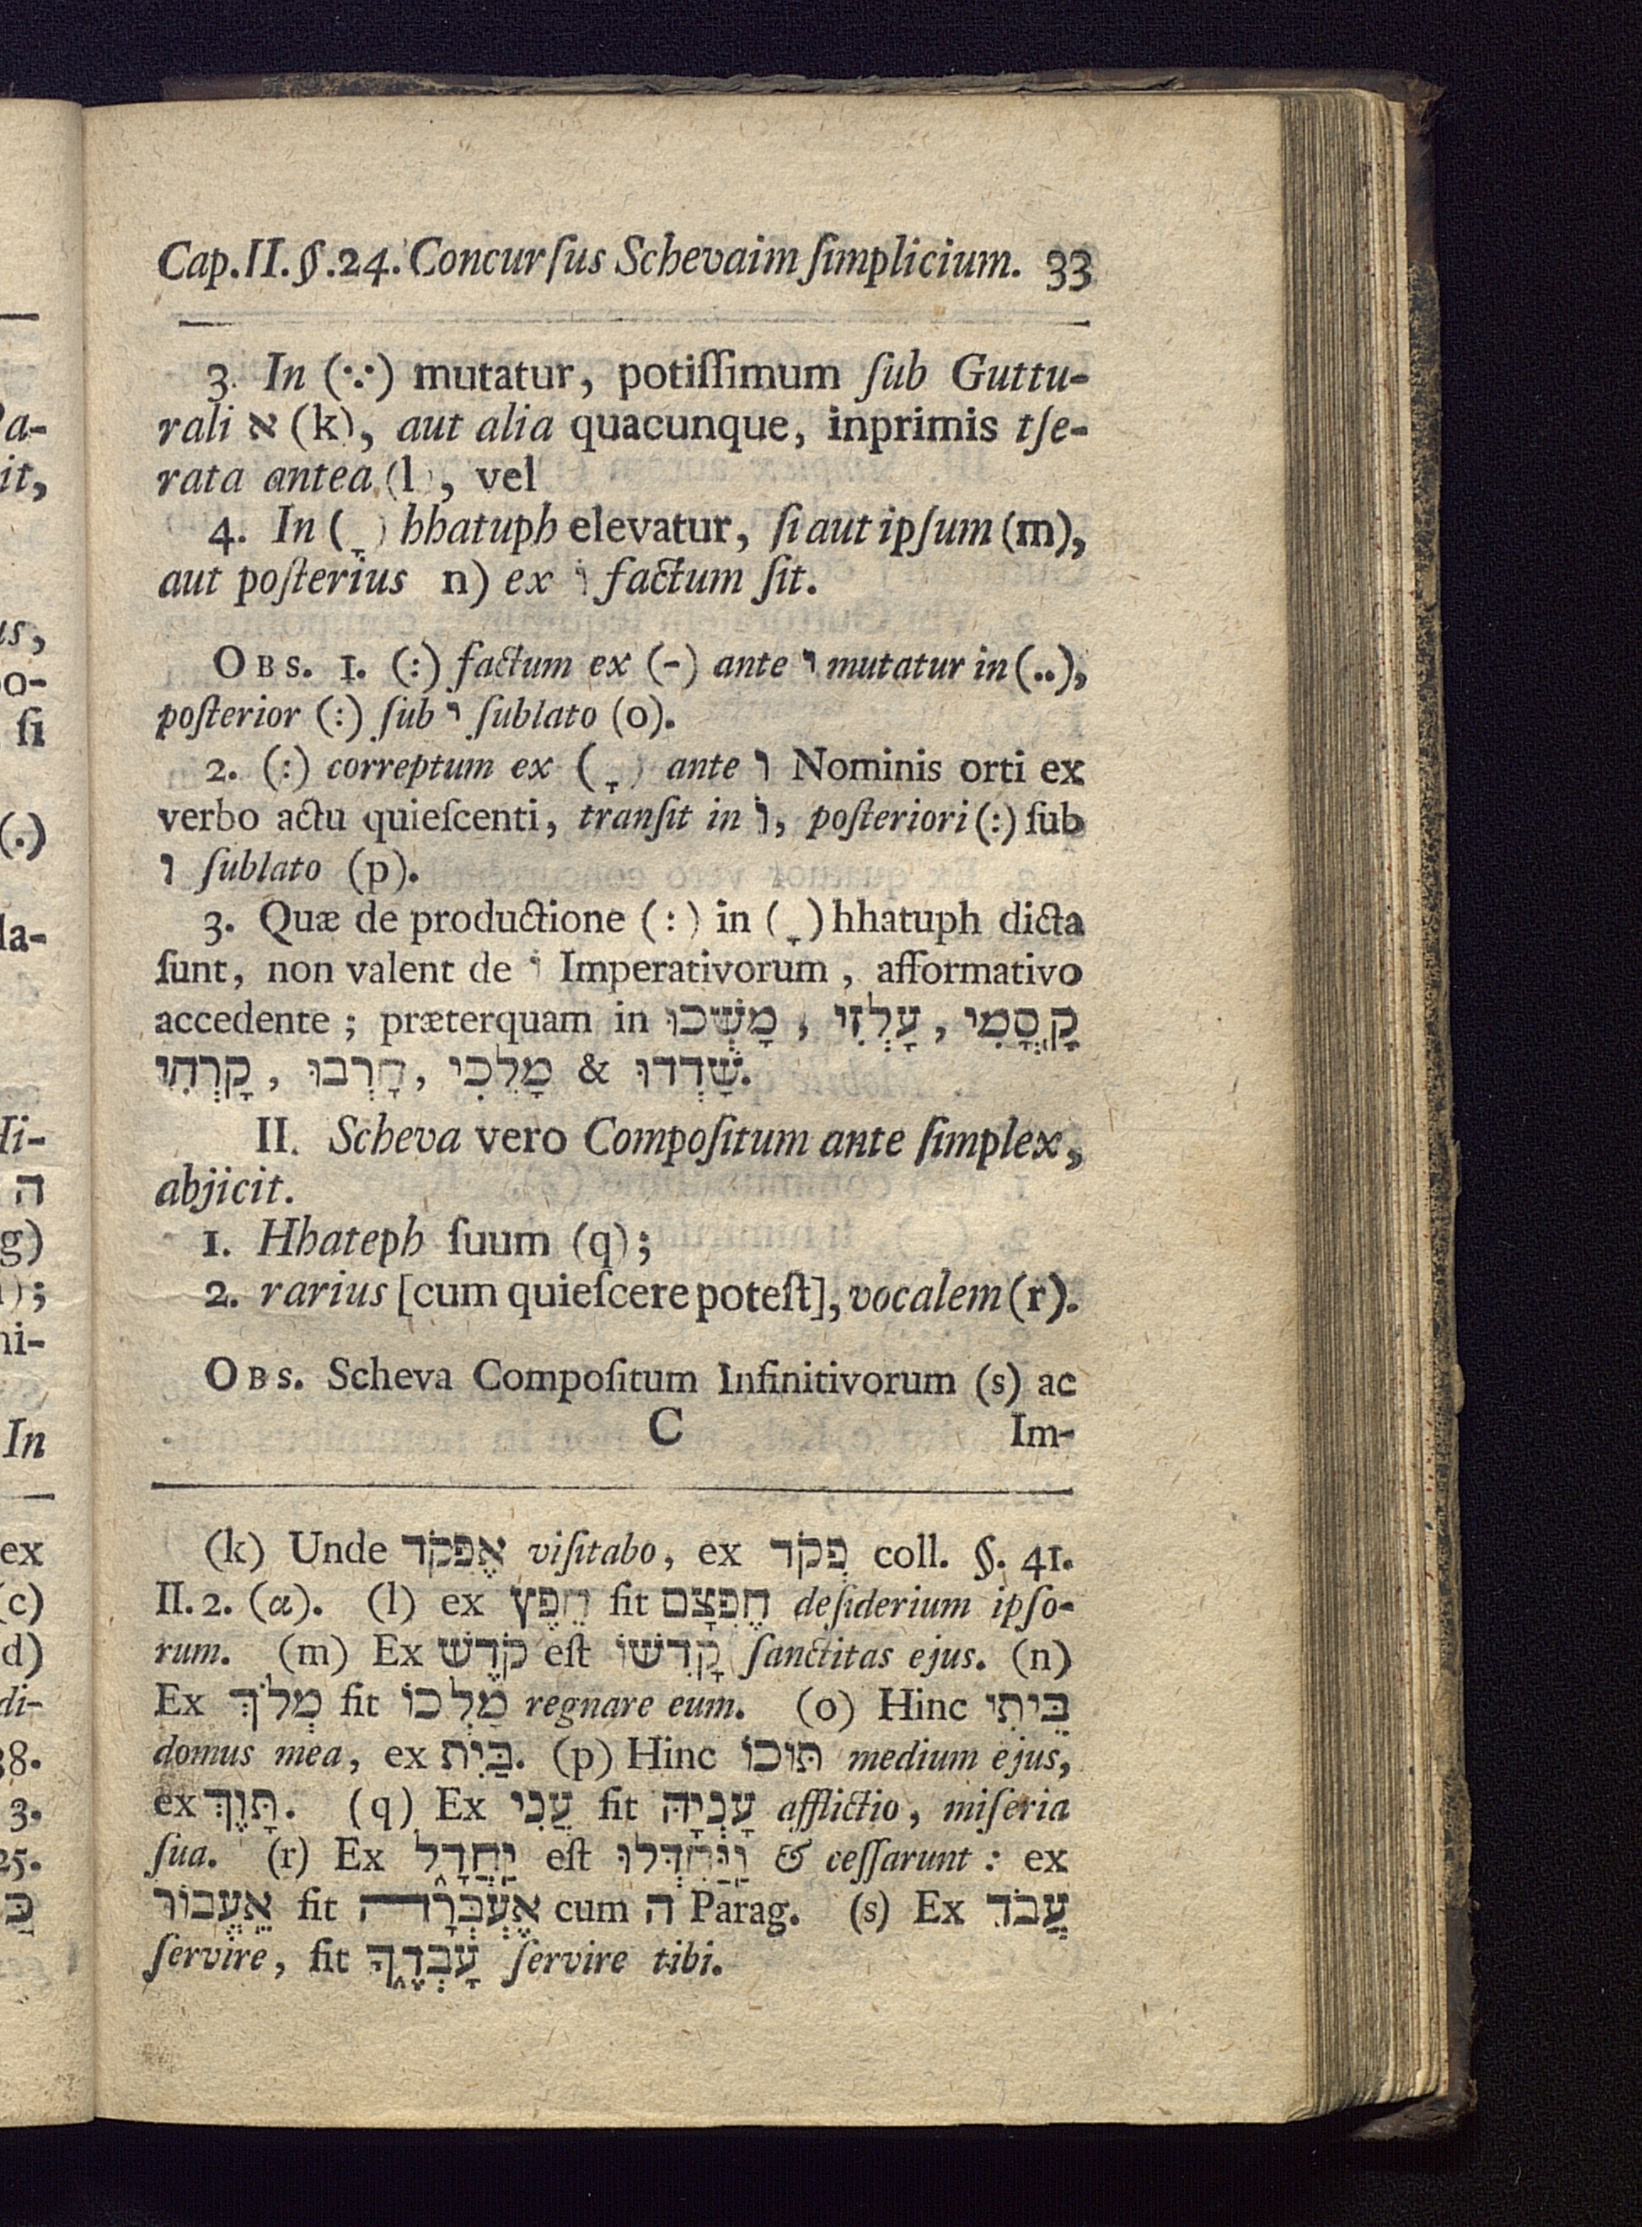 Cap. II. §. 24. Concurſus Schevaim ſimplicium. 33
3. In (ֶ) mutatur, potiſſimum ſub Guttu-
rali א (k), aut alia quacunque, inprimis tſe-
rata antea (l), vel
4. In (ָ) hhatuph elevatur, ſi aut ipſum (m),
aut poſterius n) ex וֹ factum ſit.
OBS. 1. (:) factum ex (-) ante י mutatur in (..),
poſterior (:) ſub י ſublato (o).
2. (:) correptum ex (ָ) ante ו Nominis orti ex
verbo actu quieſcenti, tranſit in וֹ, poſteriori (:) ſub
ו ſublato (p).
3. Quæ de productione (:) in (ָ) hhatuph dicta
ſunt, non valent de וֹ Imperativorum, afformativo
accedente; præterquam in קָסֳמִי, עָלְזִי, מָשְׁכוּ
שָׁדְדוּ & מָלְכִי, חָרְבוּ, קָרְהִי.
II. Scheva vero Compoſitum ante ſimplex,
abjicit.
1. Hhateph ſuum (q);
2. rarius [cum quieſcere poteſt], vocalem (r).
OBS. Scheva Compoſitum Infinitivorum (s) ac
C Im-
(k) Unde אֶפְקֹד viſitabo, ex פְּקֹד coll. §. 41.
II. 2. (α). (l) ex חֵפֶץ fit חֶפְצָם deſiderium ipſo-
rum. (m) Ex קֹדֶשׁ eſt קָדְשׁוֹ ſanctitas ejus. (n)
Ex מְלֹךְ fit מָלְכוֹ regnare eum. (o) Hinc בֵּיתִי
domus mea, ex בַּיִת. (p) Hinc תּוֹכוֹ medium ejus,
ex תָּוֶךְ. (q) Ex עֳנִי fit עָנְיָהּ afflictio, miſeria
ſua. (r) Ex יַחֲדָל eſt וַיַּחְדְּלוּ & ceſſarunt: ex
אֶעֱבוֹר fit אֶעְבְּרָה cum ה Parag. (s) Ex עֲבֹד
ſervire, fit עָבְדֶךָ ſervire tibi.